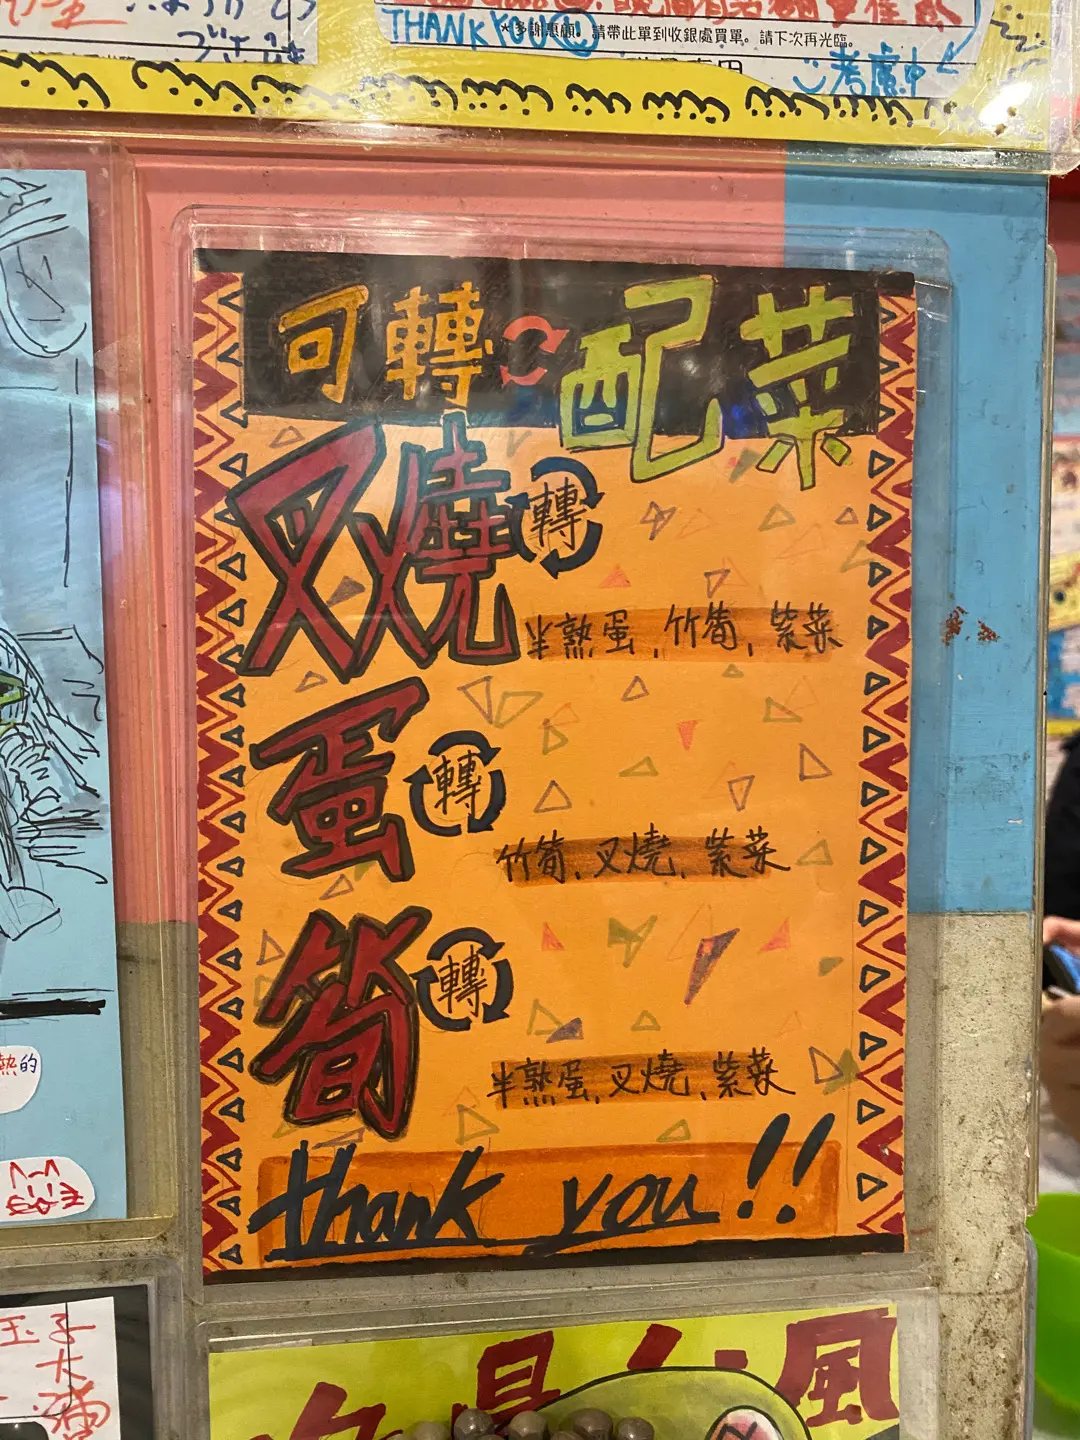 THANK YOU
*多謝惠顧。請帶此單到收銀處買單。請下次再光臨。
考慮中
可轉 配菜
叉燒 轉
半熟蛋、竹筍、紫菜
蛋 轉
竹筍、叉燒、紫菜
筍 轉
半熟蛋、叉燒、紫菜
thank you!!
熱的
玉子
大
風